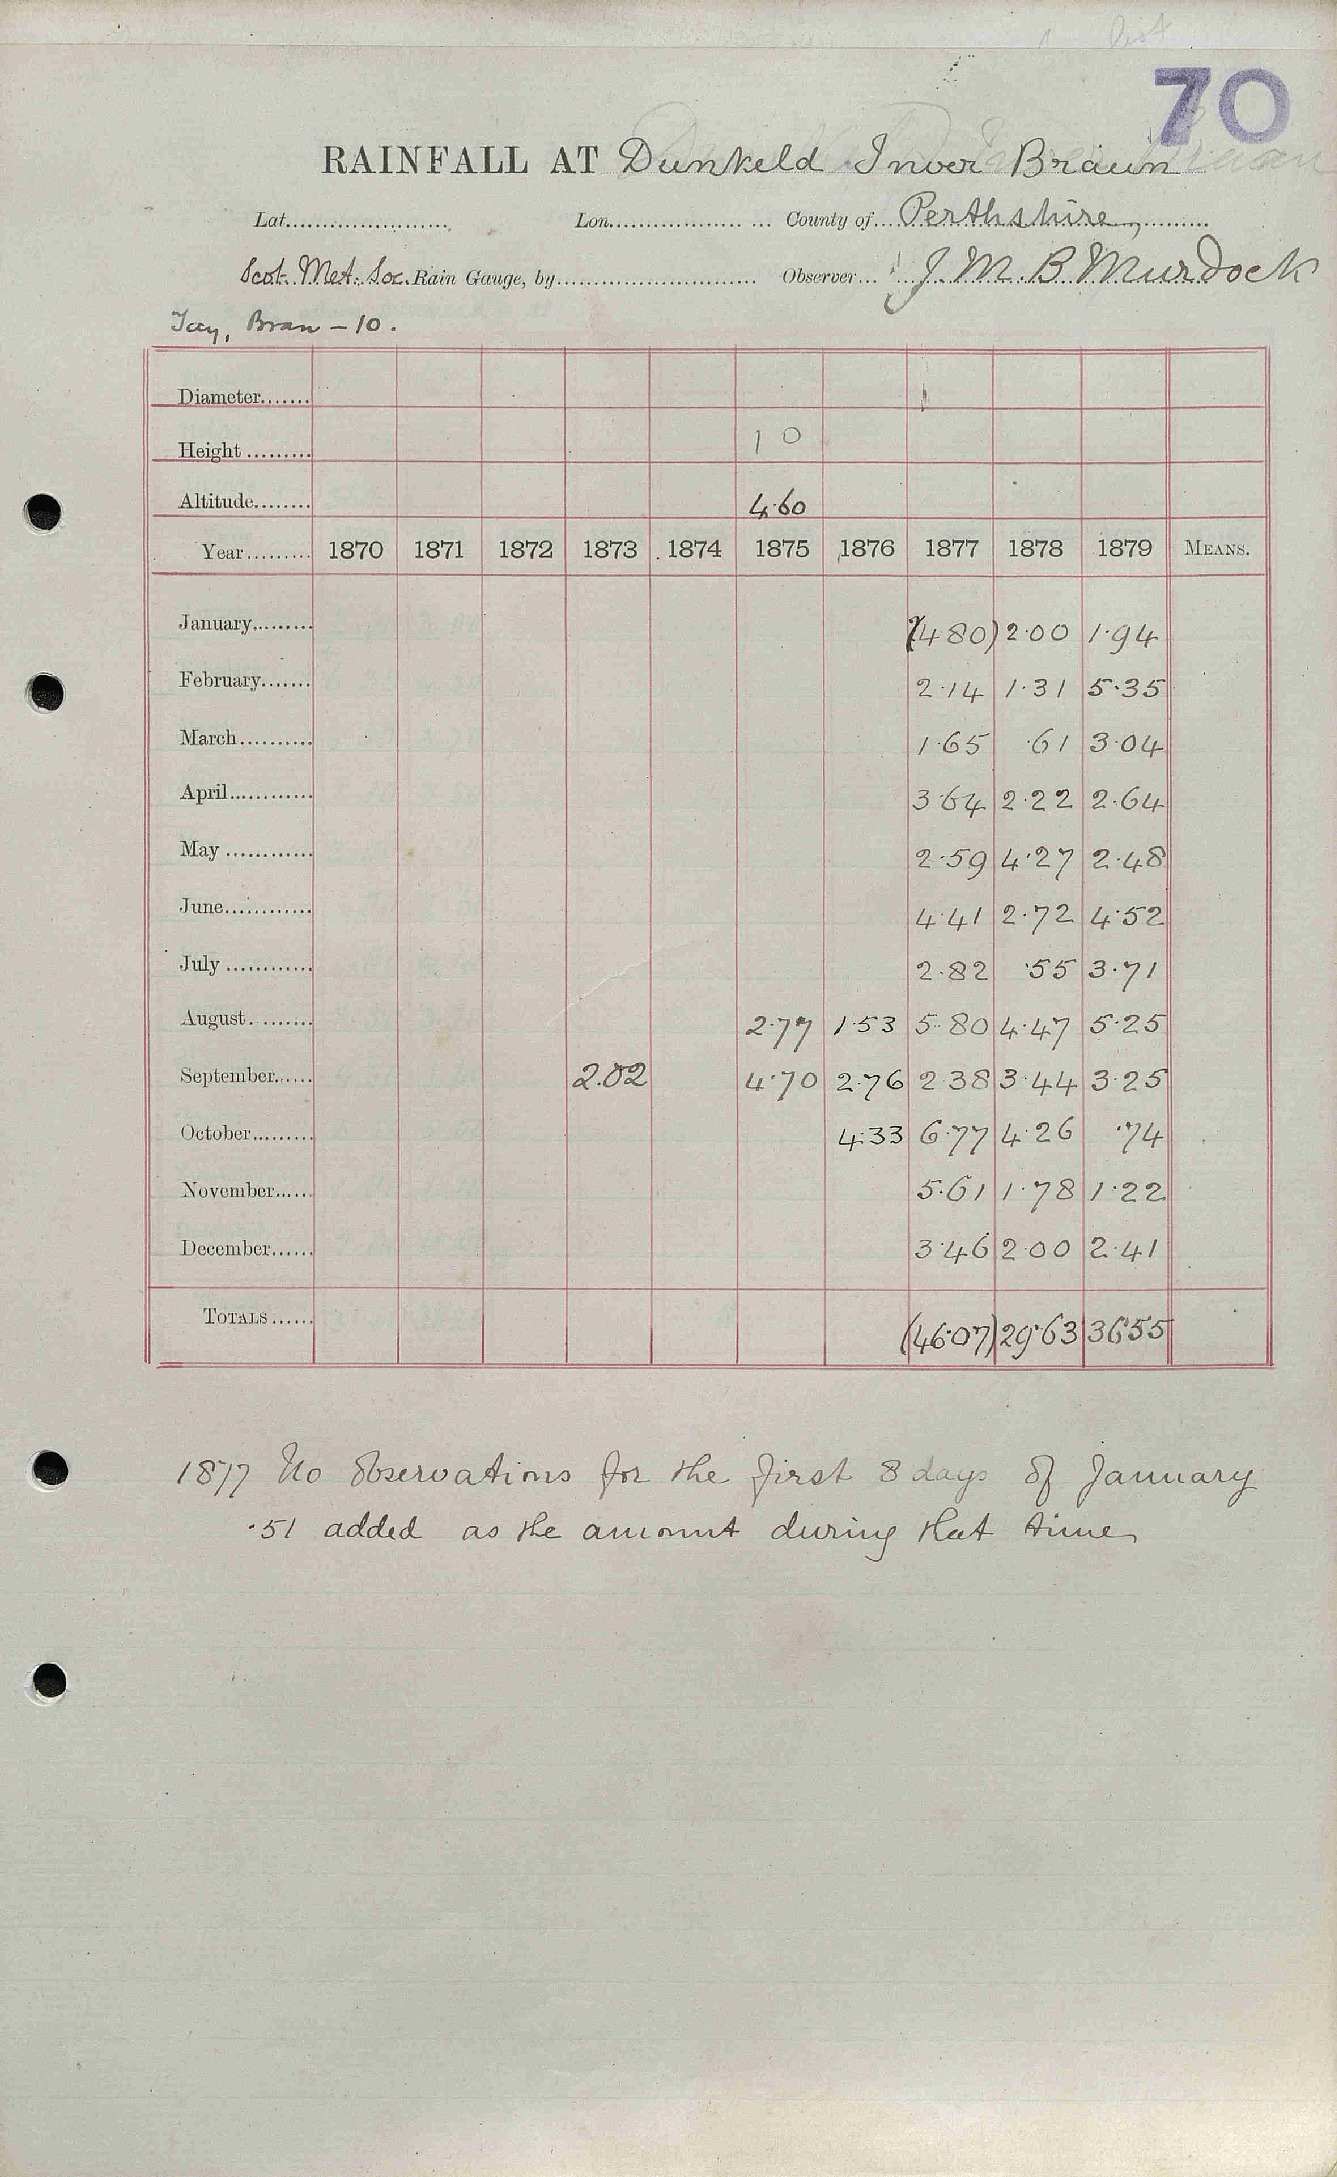 70
RAINFALL AT Dunkeld Inver Braan
Lat. Lon. County of Perthshire
Scot. Met. Soc. Rain Gauge, by Observer J. M. B. Murdock
Tay, Bran - 10.
Diameter
Height 10
Altitude 460
Year 1870 1871 1872 1873 1874 1875 1876 1877 1878 1879 MEANS.
January (4.80) 2.00 1.94
February 2.14 1.31 5.35
March 1.65 .61 3.04
April 3.64 2.22 2.64
May 2.59 4.27 2.48
June 4.41 2.72 4.52
July 2.82 .55 3.71
August 2.77 1.53 5.80 4.47 5.25
September 2.02 4.70 2.76 2.38 3.44 3.25
October 4.33 6.77 4.26 .74
November 5.61 1.78 1.22
December 3.46 2.00 2.41
TOTALS (46.07) 29.63 36.55
1877 No observations for the first 8 days of January
.51 added as the amount during that time